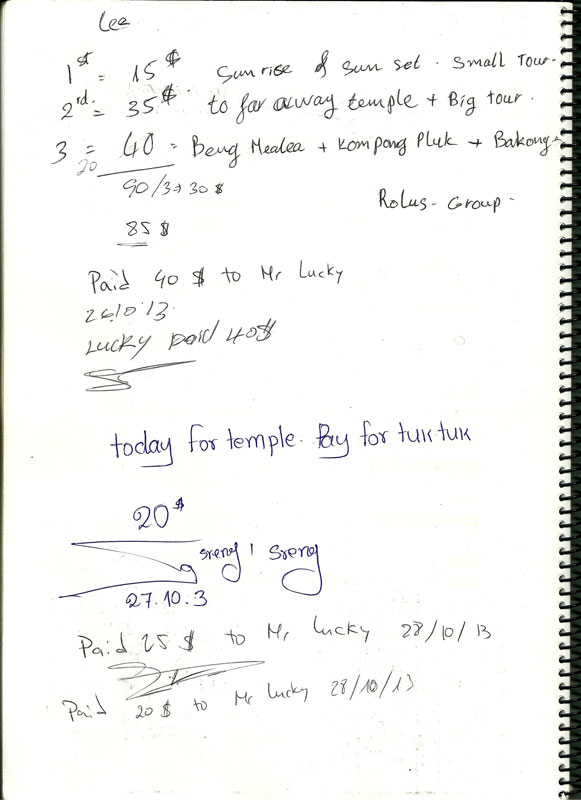 Lee
1st = 15$ Sun rise & sun set. Small Tour.
2rd = 35$. to far away temple + Big tour.
3 = 40 = Beng Mealea + Kompong Pluk + Bakong
20
90/3 => 30 $
Rolus - Group -
85 $
Paid 40 $ to Mr Lucky
26/10 13.
Lucky paid 40$
today for temple. Pay for tuk tuk
20$
sreng' sreng
27.10.3
Paid 25 $ to Mr Lucky 28/10/13
Paid 20 $ to Mr Lucky 28/10/13